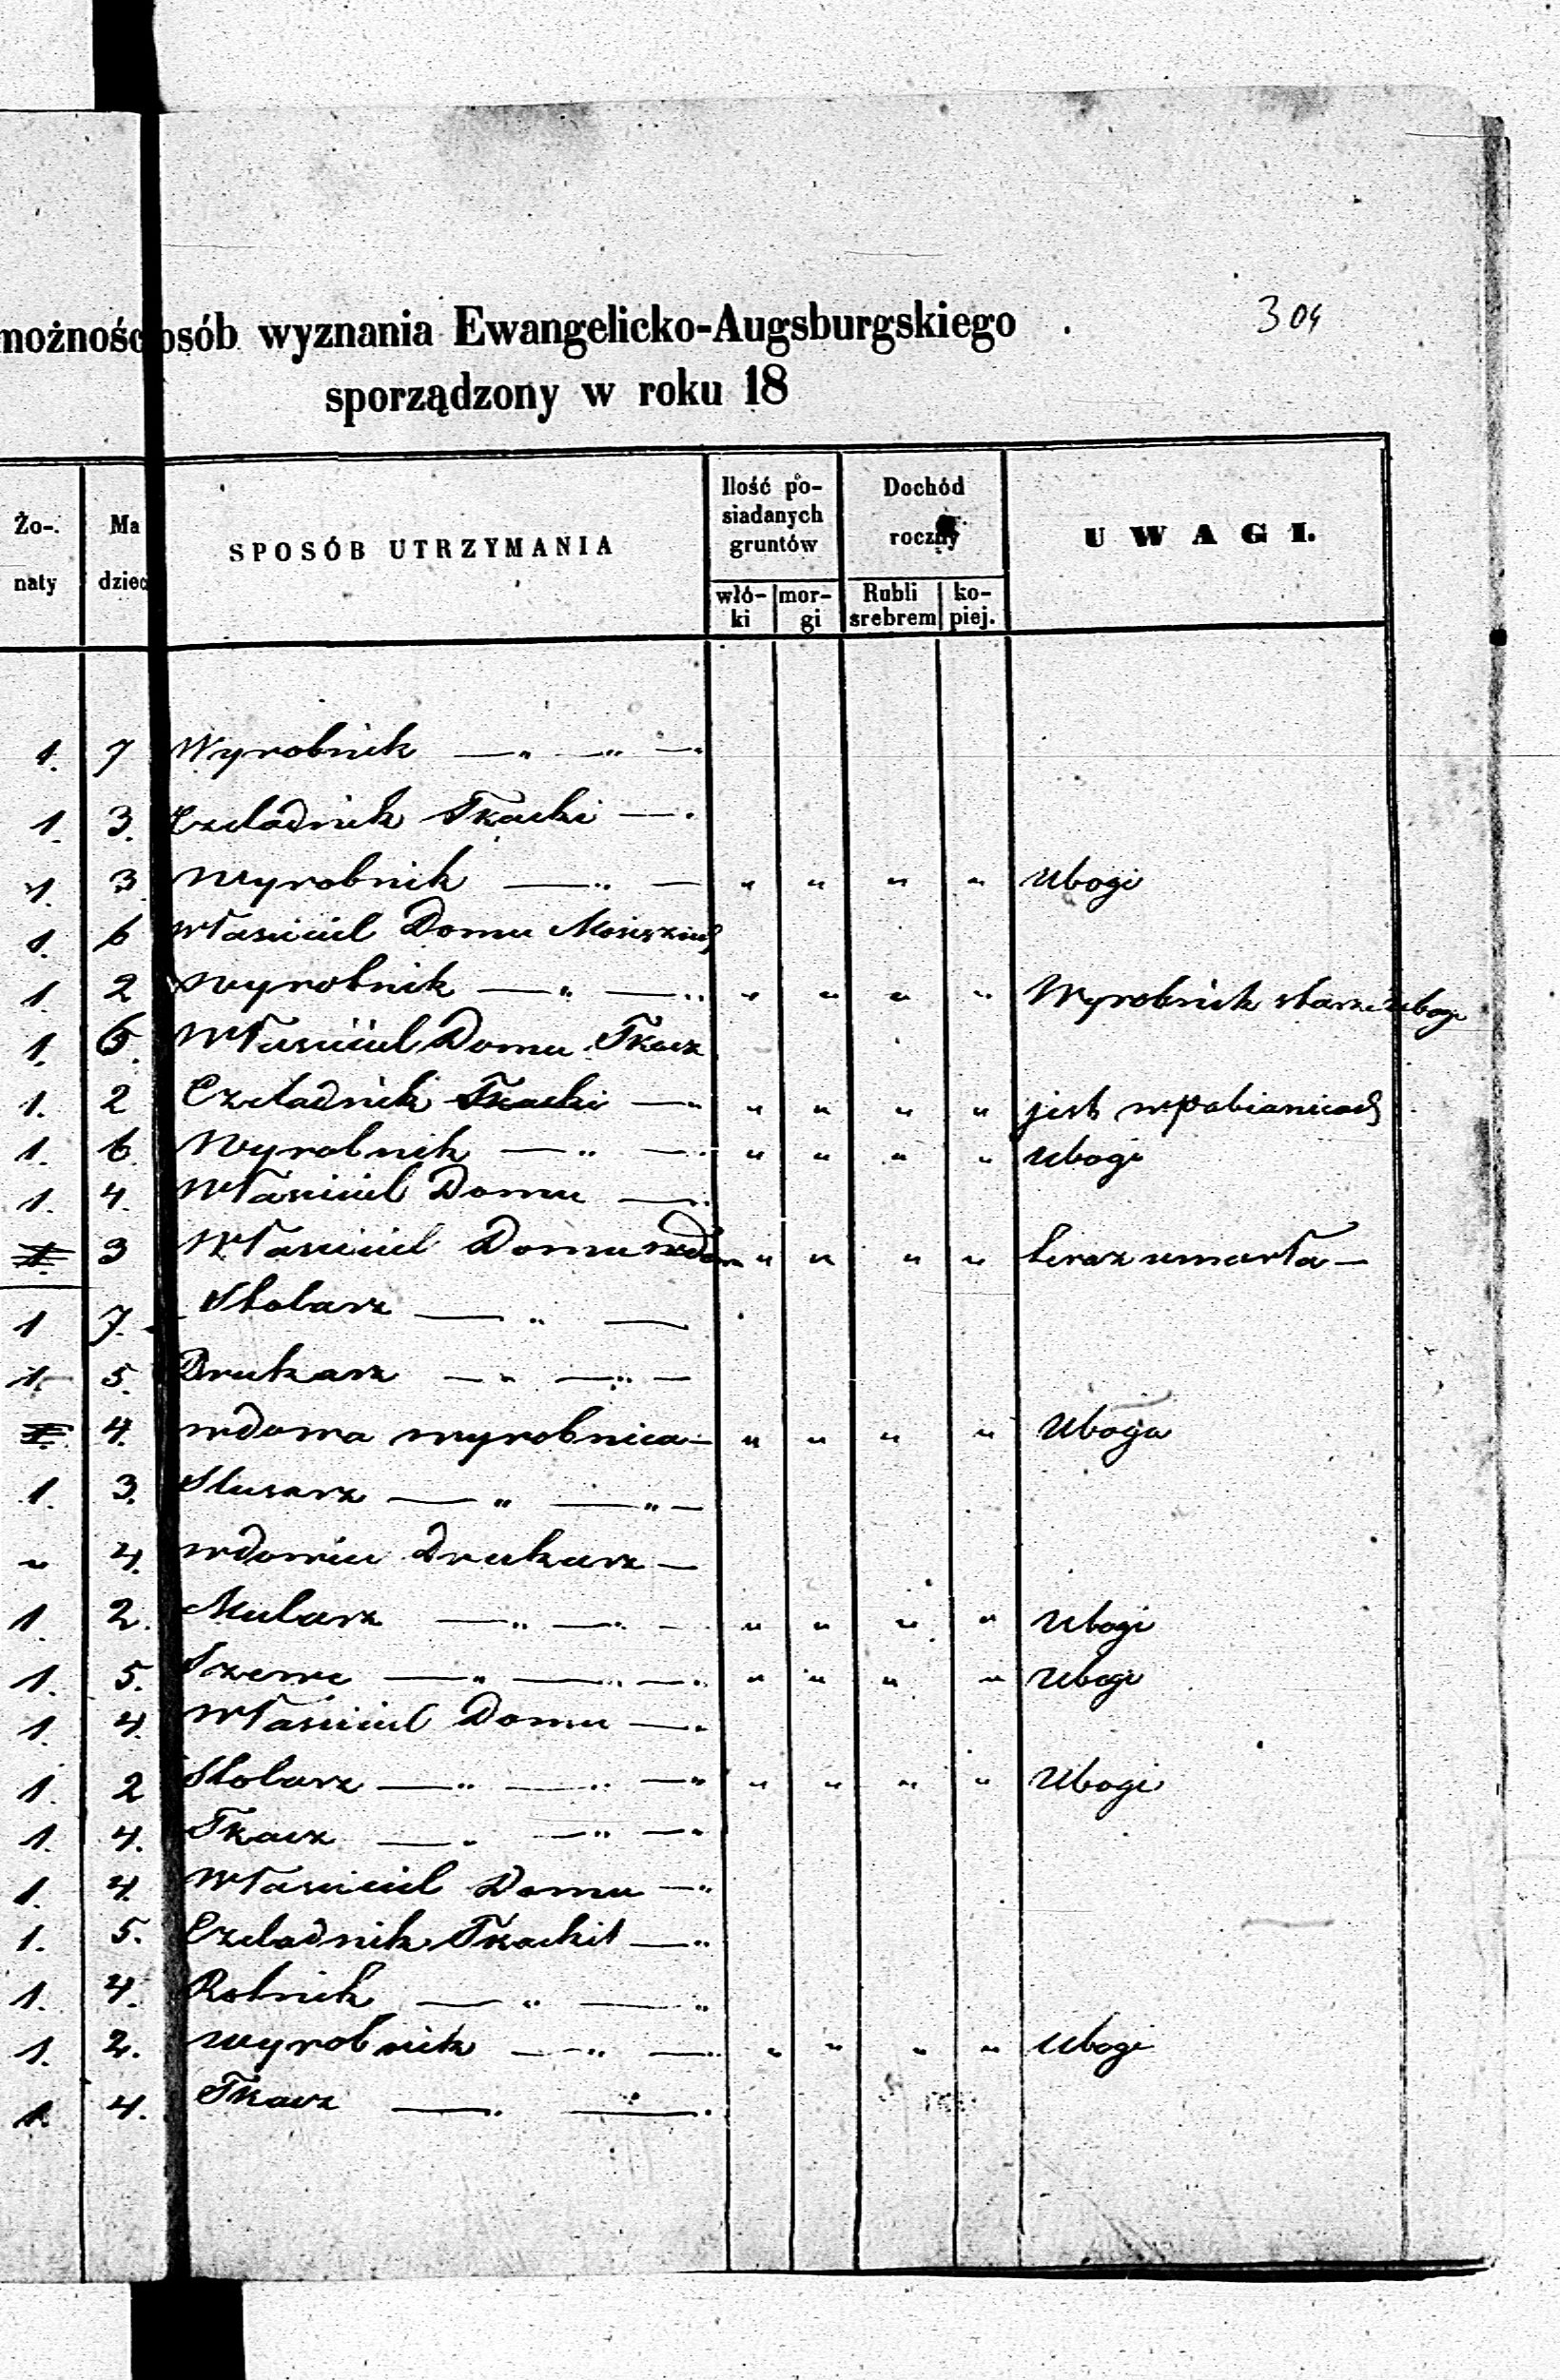 możności osób wyznania Ewangelicko-Augsburgskiego . 304
sporządzony w roku 18
Żo-. naty
Ma dzieci
SPOSÓB UTRZYMANIA
Ilość po-
siadanych
gruntów
włó-
ki
mor-
gi
Dochód
roczny
Rubli
srebrem
ko-
piej.
UWAGI.
1. 7 Wyrobnik — „ — „ —
1. 3. Czeladnik Tkacki —
1. 3 Wyrobnik — „ — „ „ „ „ Ubogi
1. 6 Własciciel Domu
1. 2 wyrobnik — „ — „ „ „ „ „ Wyrobnik starzec Ubogi
1. 6. Własciciel Domu Tkacz
1. 2 Czeladnik Tkacki — „ „ „ „ „ jest w Pabianicach
1. 6. Wyrobnik — „ — „ „ „ „ Ubogi
1. 4. Własciciel Domu —
1. 3 Własciciel Domu wdowa „ „ „ „ teraz umarła —
1 7. Stolarz — „ —
1. 5. Drukarz — „ — „ —
1. 4. wdowa wyrobnica — „ „ „ „ Uboga
1. 3. Slusarz — „ — „ —
„ 4. wdowiec Drukarz —
1. 2. Mularz — „ — „ — „ „ „ „ Ubogi
1. 5. Szewc — „ — „ — „ „ „ „ Ubogi
1. 4. Własciciel Domu —
1. 2 Stolarz — „ — „ — „ „ „ „ „ Ubogi
1. 4. Tkacz — „ — „ —
1. 4. Własciciel Domu — „
1. 5. Czeladnik Tkacki — „
1. 4. Rolnik — „ — „
1. 2. wyrobnik — „ — „ „ „ „ „ Ubogi
1. 4. Tkacz — —